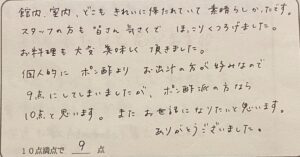 館内、室内、どこも きれいに保たれていて 素晴らしかったです。
スタッフの方も 皆さん 気さくで ほっこりくつろげました。
お料理も 大変 美味しく 頂きました。
個人的に ポン酢より お出汁の方が好みなので
9点にしてしまいましたが、ポン酢派の方なら
10点と思います。また お世話になりたいと思います。
ありがとうございました。
10点満点で 9 点